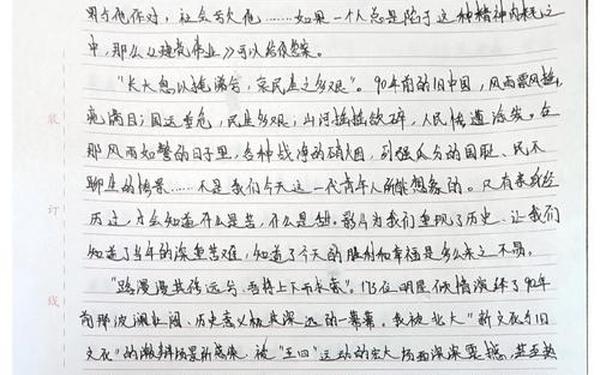 男与他作对，社会亏欠他……如果一个人总是陷于这种精神内耗之
中，那么《建党伟业》可以给你答案。
“长太息以掩涕兮，哀民生之多艰”。90年前的旧中国，风雨飘摇，
疮痍满目；国运垂危，民生多艰；山河摇摇欲碎，人民惨遭涂炭。在
那风雨如磐的日子里，各种战争的硝烟、列强瓜分的国耻、民不
聊生的情景……不是我们今天这一代青年人所能想象的。只有亲身经
历过，才会知道什么是苦，什么是甜。影片为我们重现了历史，让我们
知道了当年的深重苦难，知道了今天的胜利和幸福是多么来之不易。
“路漫漫其修远兮，吾将上下而求索”。173位明星倾情演绎了90年
前那波澜壮阔、历史意义极其深远的一幕幕。我被北大“新文化与旧
文化”的激辩场景所感染，被“五四”运动的宏大场面深深震撼，甚至热
装
订
线